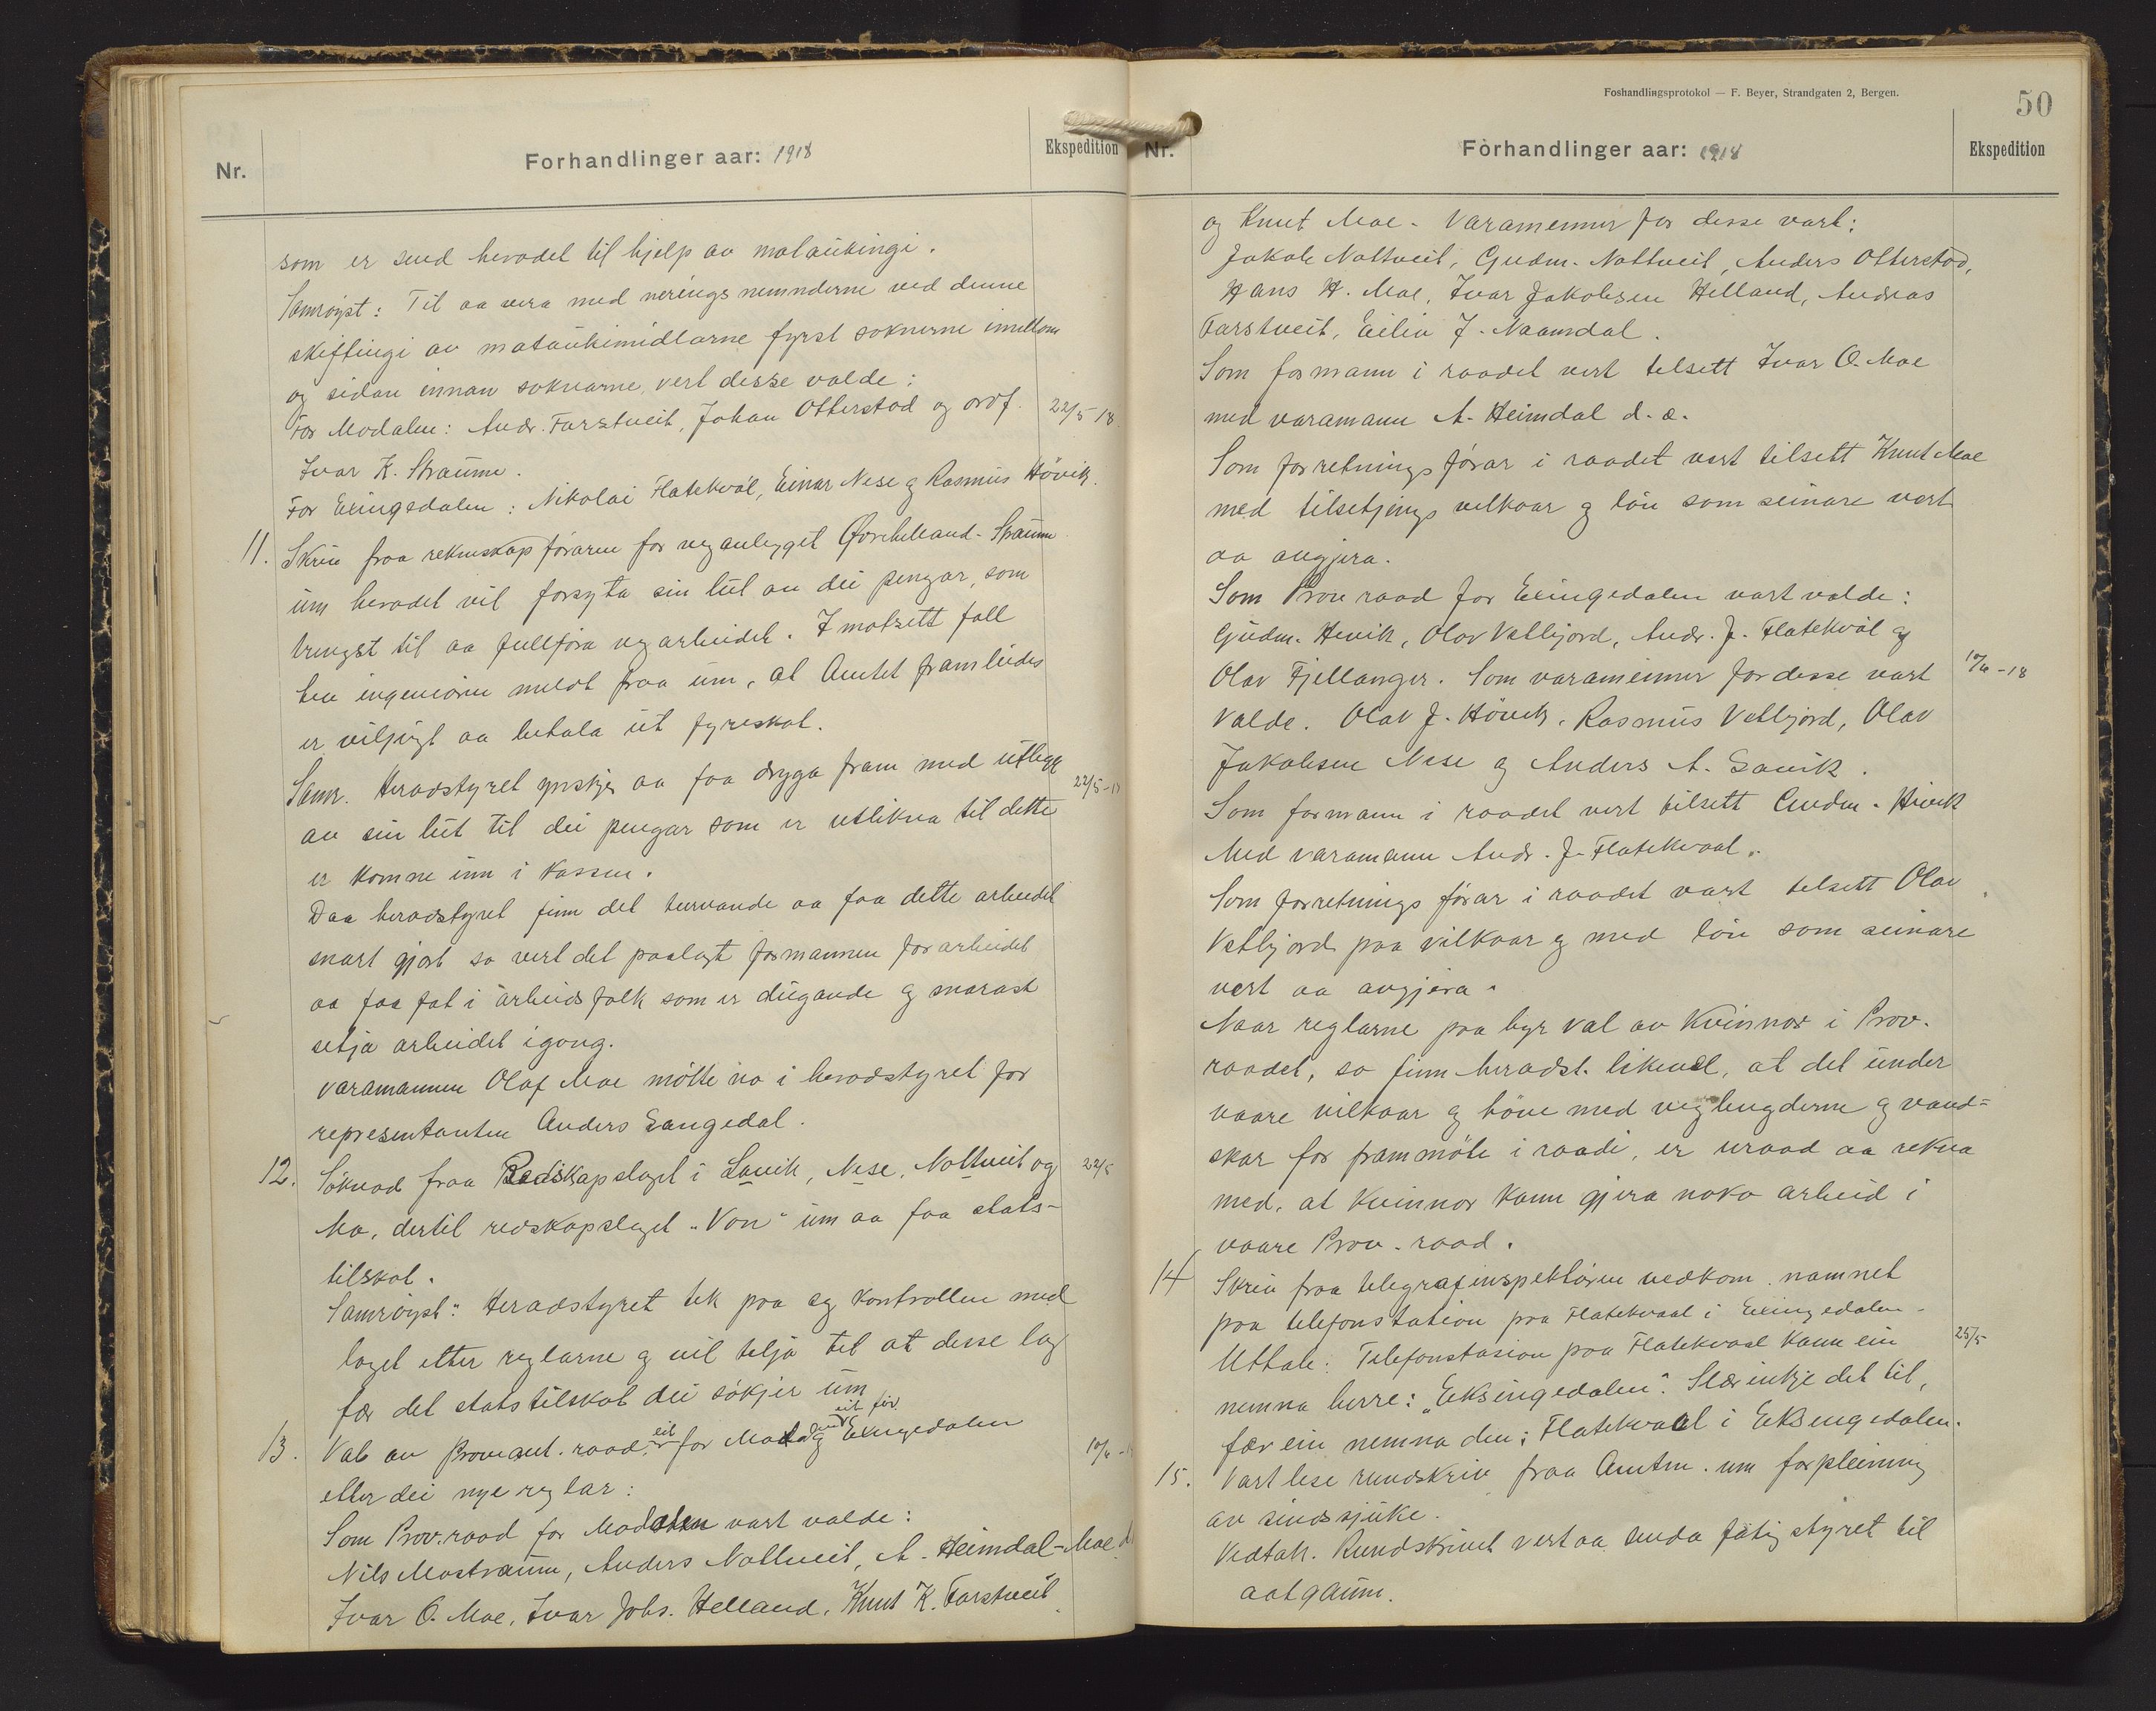 Nr.
Forhandlinger aar: 1918
Ekspedition
som er send heradet til hjelp av mataukingi.
Samrøyst: Til aa vera med nerings nemnderne ved denne
skiftingi av mataukimidlarne fyrst soknerne imillom
og sidan innan soknarne, vert desse valde:
For Modalen: Andr. Farstveit, Johan Otterstad og ordf. 22/5 18
Ivar K. Straume.
For Eksingedalen: Nikolai Flatekvål, Einar Nese og Rasmus Høvik.
11. Skriv fraa rekneskapsføraren for veganlegget Øvrehelland-Straume
um heradet vil forsyta sin lut av dei pengar, som
trengst til aa fullføra vegarbeidet. I motsett fall
hev ingeniøren meldt fraa um, at Amtet framleides
er viljugt aa betala ut fyreskot.
Samr. Heradstyret ynskjer aa faa dryga fram med utlegg 22/5-18
av sin lut til dei pengar som er utlikna til dette
er komne inn i kassen.
Daa heradstyret finn det turvande aa faa dette arbeidet
snart gjort so vert det paalagt formannen for arbeidet
aa faa fat i arbeidsfolk som er dugande og snarast
setja arbeidet igong.
Varamannen Olaf Moe møtte no i heradstyret for
representanten Anders Langedal.
12. Søknad fraa Redskapslaget i Lavik, Nese, Nottveit og 22/5
Mo, dertil redskapslaget "Von" um aa faa stats-
tilskot.
Samrøyst: Heradstyret tek paa seg kontrollen med
laget etter reglarne og vil telja til at desse lag
fær det statstilskot dei søkjer um
13. Val av Proviant.raad, eit for Modal og eit for Eksingedalen 10/6-18
etter dei nye reglar:
Som Prov.raad for Modalen vart valde:
Nils Mostraum, Anders Nottveit, A. Heimdal-Moe d.
Ivar O. Moe, Ivar Johs. Helland, Knut K. Farstveit
Foshandlingsprotokol — F. Beyer, Strandgaten 2, Bergen.
50
Nr.
Forhandlinger aar: 1918
Ekspedition
og Knut Moe. Varamenner for desse vart:
Jakob Nottveit, Gudm. Nottveit, Anders Otterstad,
Hans H. Moe, Ivar Jakobsen Helland, Andreas
Farstveit, Eiliv J. Naamdal.
Som formann i raadet vert telsett Ivar O. Moe
med varamann A. Heimdal d.e.
Som forretningsførar i raadet vert tilsett Knut Moe
med tilsetjings vilkaar og løn som seinare vert
aa avgjera.
Som Prov raad for Eksingedalen vart valde:
Gudm. Høvik, Olav Vetlejord, Andr. J. Flatekvål og
Olav Fjellanger. Som varamenner for desse vart 10/6-18
valde. Olav J. Høvik, Rasmus Vetlejord, Olav
Jakobsen Nese og Anders A. Lavik.
Som formann i raadet vert tilsett Gudm. Høvik
Med varamann Andr. J. Flatekvaal.
Som forretnings førar i raadet vart telsett Olav
Vetlejord paa vilkaar og med løn som seinare
vert aa avgjera.
Naar reglarne paa byr val av Kvinnor i Prov.
raadet, so finn heradst. likevel, at det under
vaare vilkaar og høve med veglengderne og vand-
skar for frammøte i raadi, er uraad aa rekna
med, at kvinnor kann gjera noko arbeid i
vaare Prov. raad.
14 Skriv fraa telegrafinspektøren vedkom. namnet
paa telefonstation paa Flatekvaal i Eksingedalen.
Uttale: Telefonstasion paa Flatekvaal kann ein 25/5
nemna berre: "Eksingedalen". Slær inkje det til,
fær ein nemna den: Flatekvaal i Eksingedalen.
15. Vart lese rundskriv fraa Amtm. um forpleining
av sindssjuke.
Vedtak. Rundskrivet vert aa senda fatigstyret til
aatgaum.